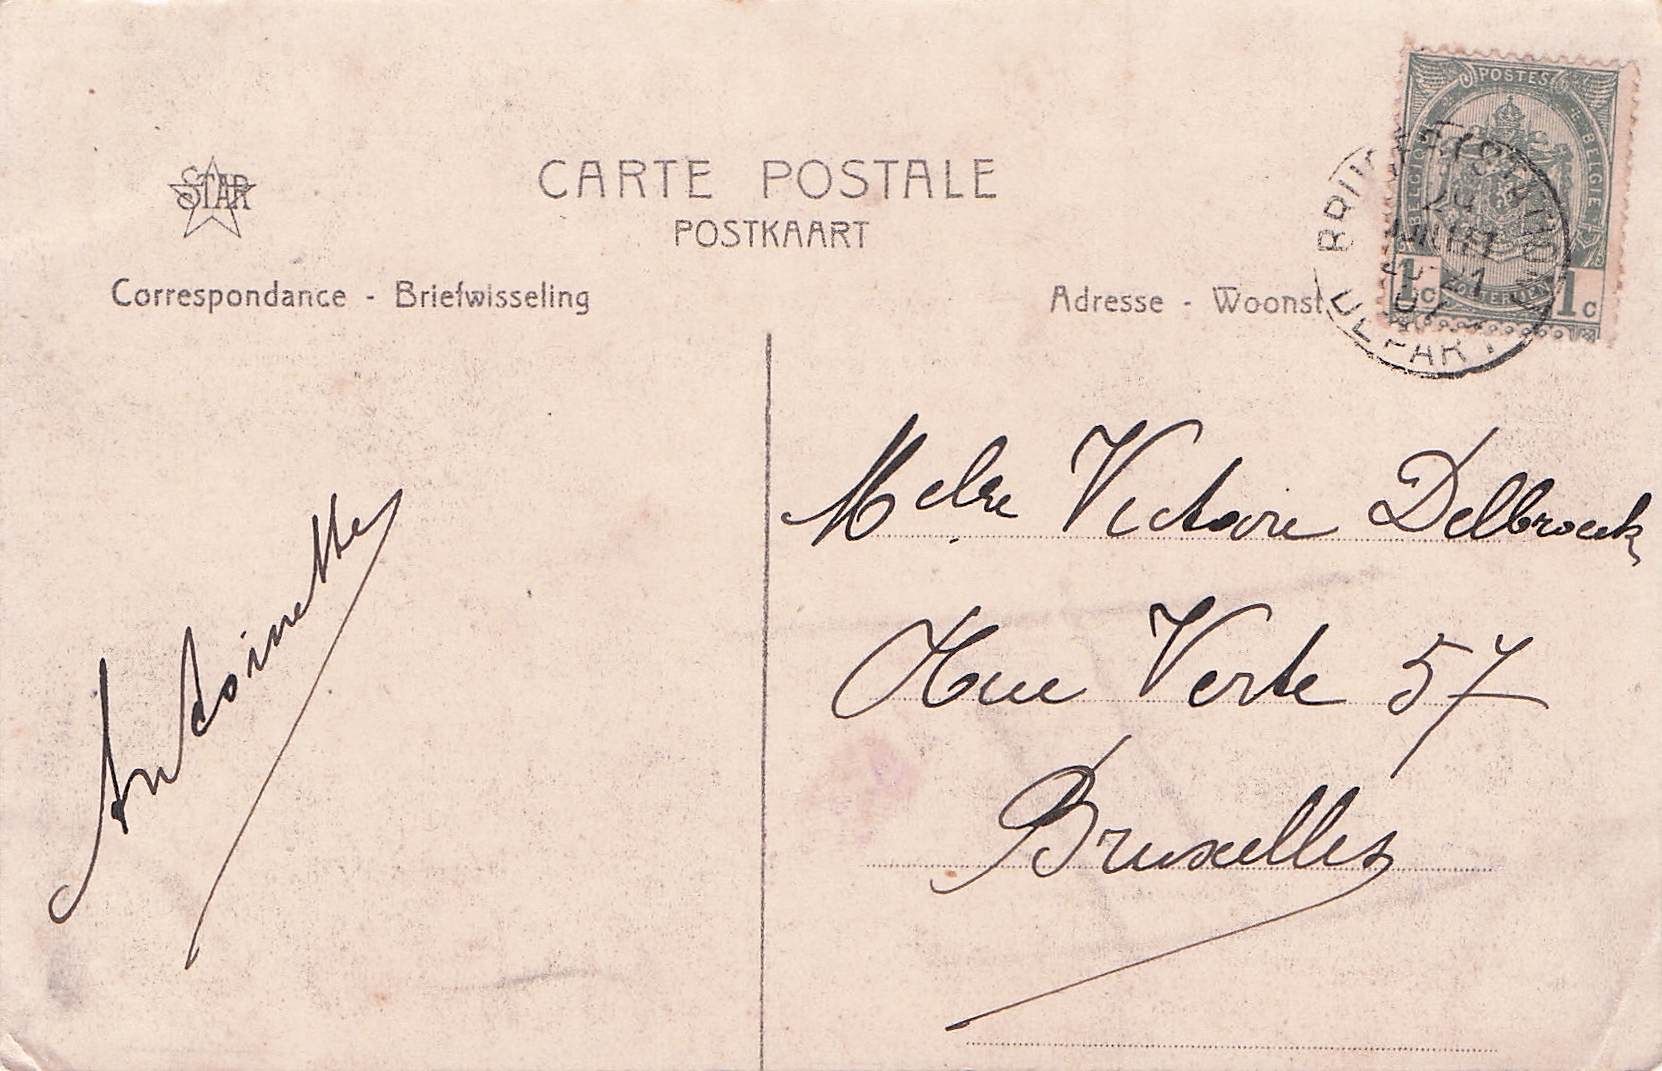 STAR
CARTE POSTALE
POSTKAART
Correspondance - Briefwisseling
Adresse - Woonst
POSTES
BELGIQUE
BELGIE
1c
1c
DEPART
Antoinette
Victoire Delbroeck
Rue Verte 57
Bruxelles